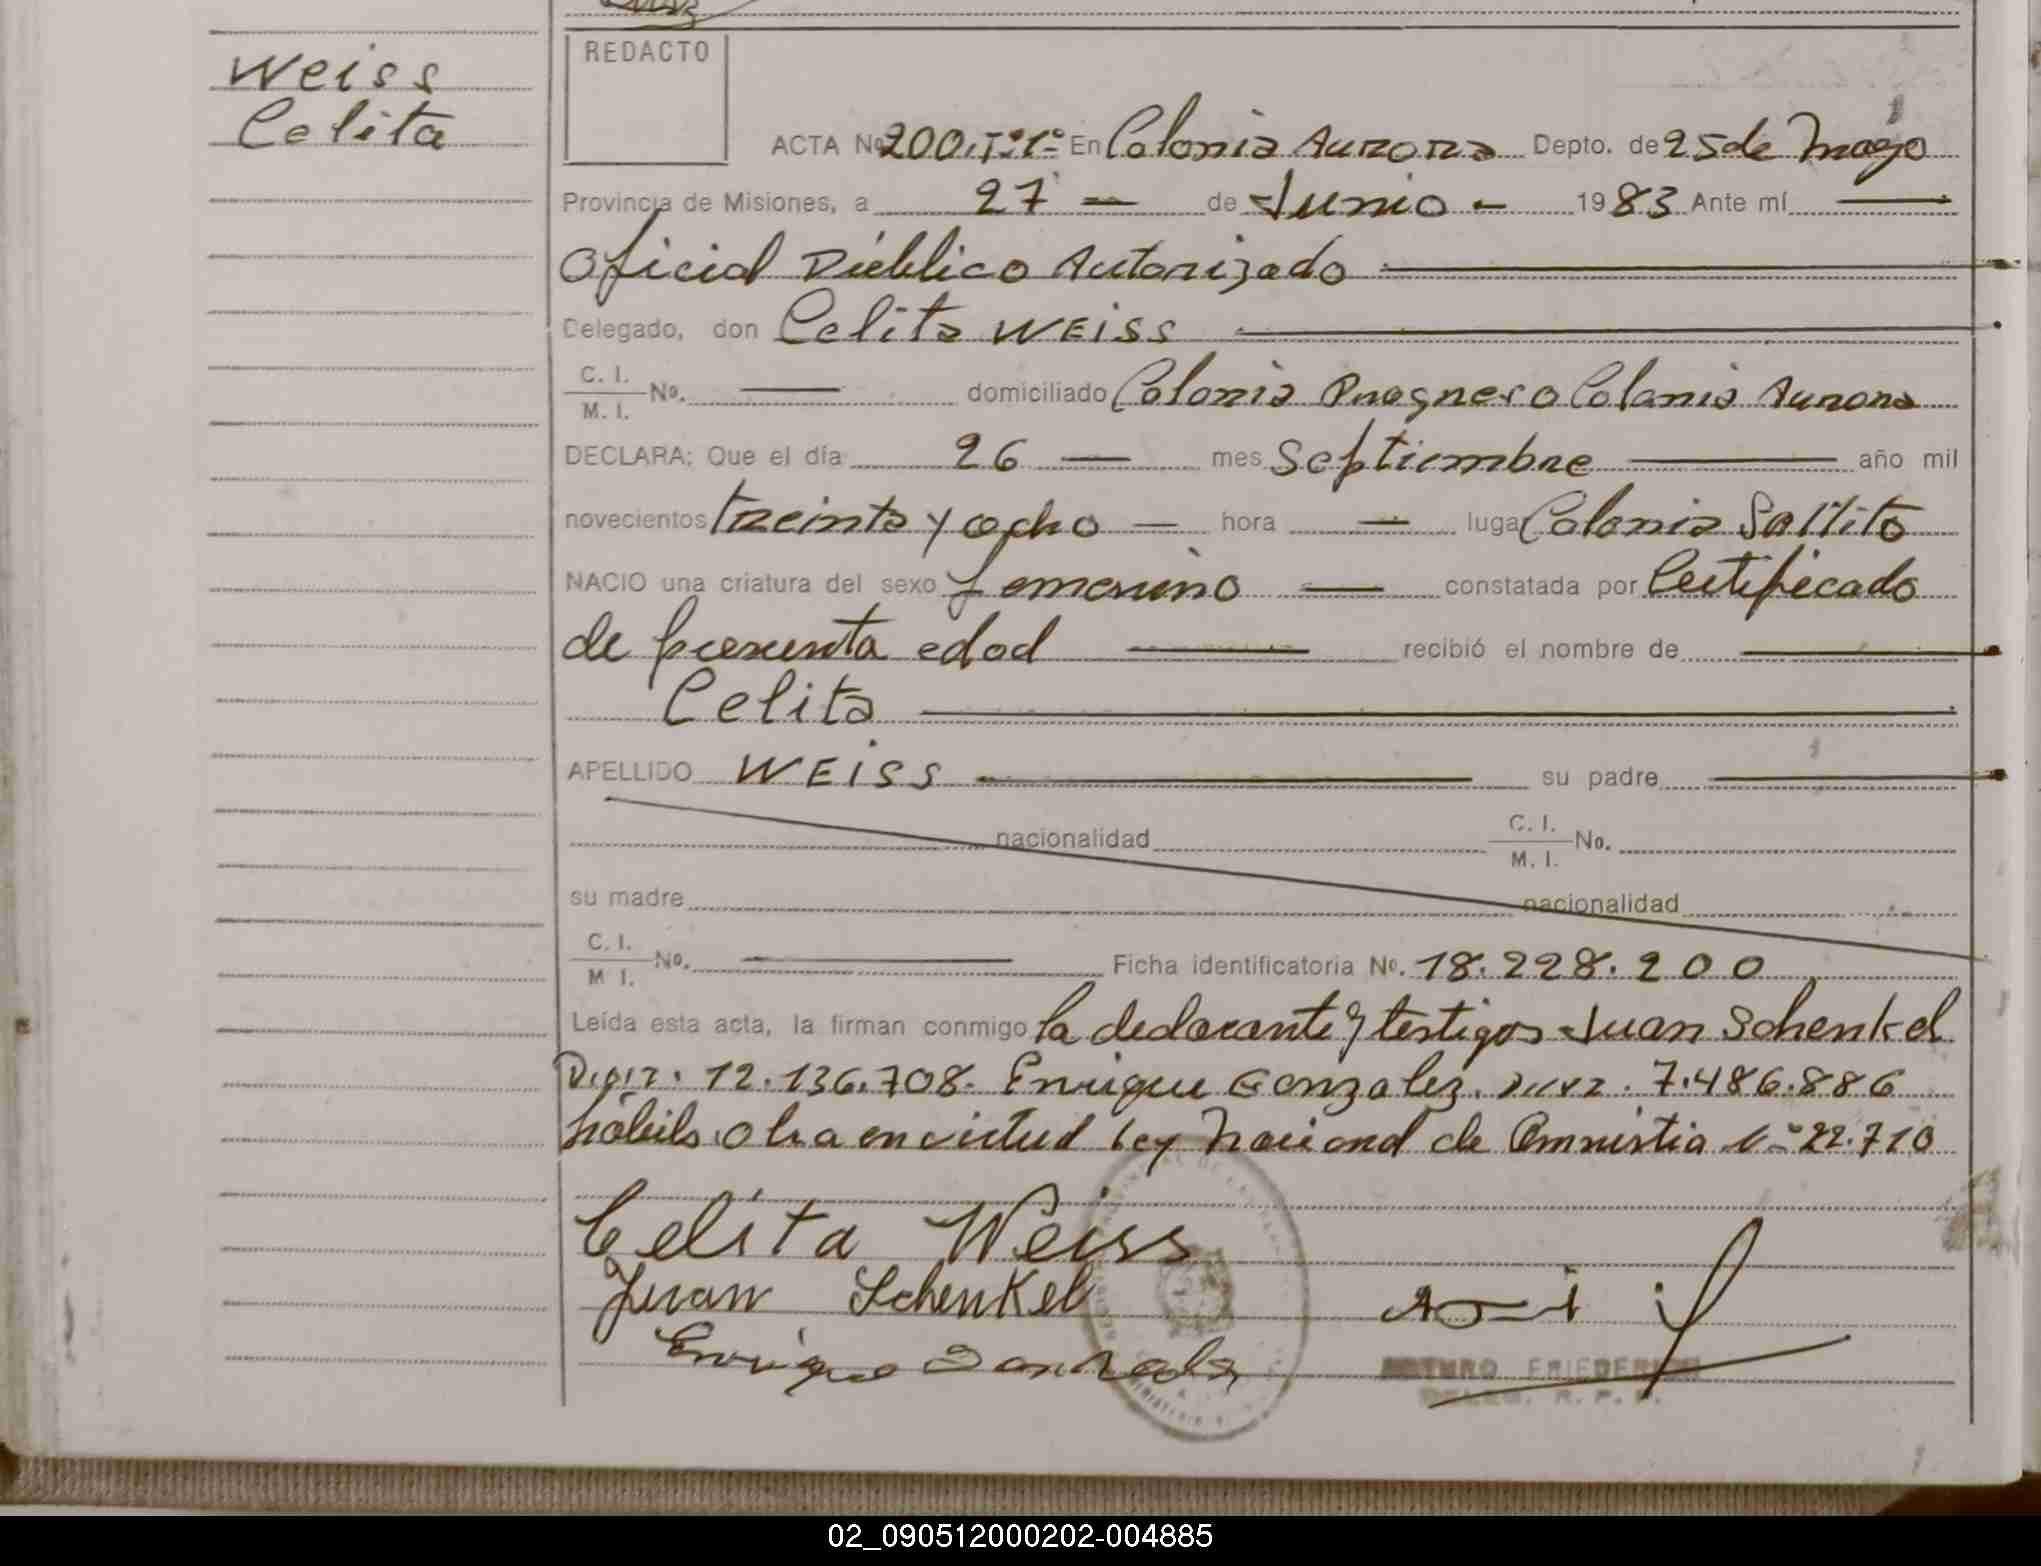 Weiss
Celita
REDACTO
ACTA Nº 200.Tº1º- En Colonia Aurora Depto. de 25 de Mayo
Provincia de Misiones, a 27 — de Junio - 1983 Ante mí —
Oficial Público Autorizado —
Delegado, don Celita WEISS —
C. I.
M. I. No. — domiciliado Colonia Colonia Aurora
DECLARA: Que el día 26 — mes Septiembre — año mil
novecientos treinta y ocho — hora — luga Colonia Saltito
NACIO una criatura del sexo femenino — constatada por Certificado
de presunta edad — recibió el nombre de —
Celita —
APELLIDO WEISS — su padre —
nacionalidad C. I.
M. I. No.
su madre nacionalidad
C. I.
M I. No. — Ficha identificatoria No. 18.228.200
Leída esta acta, la firman conmigo la declarante y testigos Juan Schenkel
12.136.708. Enrique Gonzalez. 7.486.886
hábils. Obra en virtud Ley Nacional de Amnistia Nº 22.710
Celita Weiss
Juan Schenkel
Enrique Gonzalez
ARTURO FRIEDERICH
DELEG. R. P. P.
02_090512000202-004885